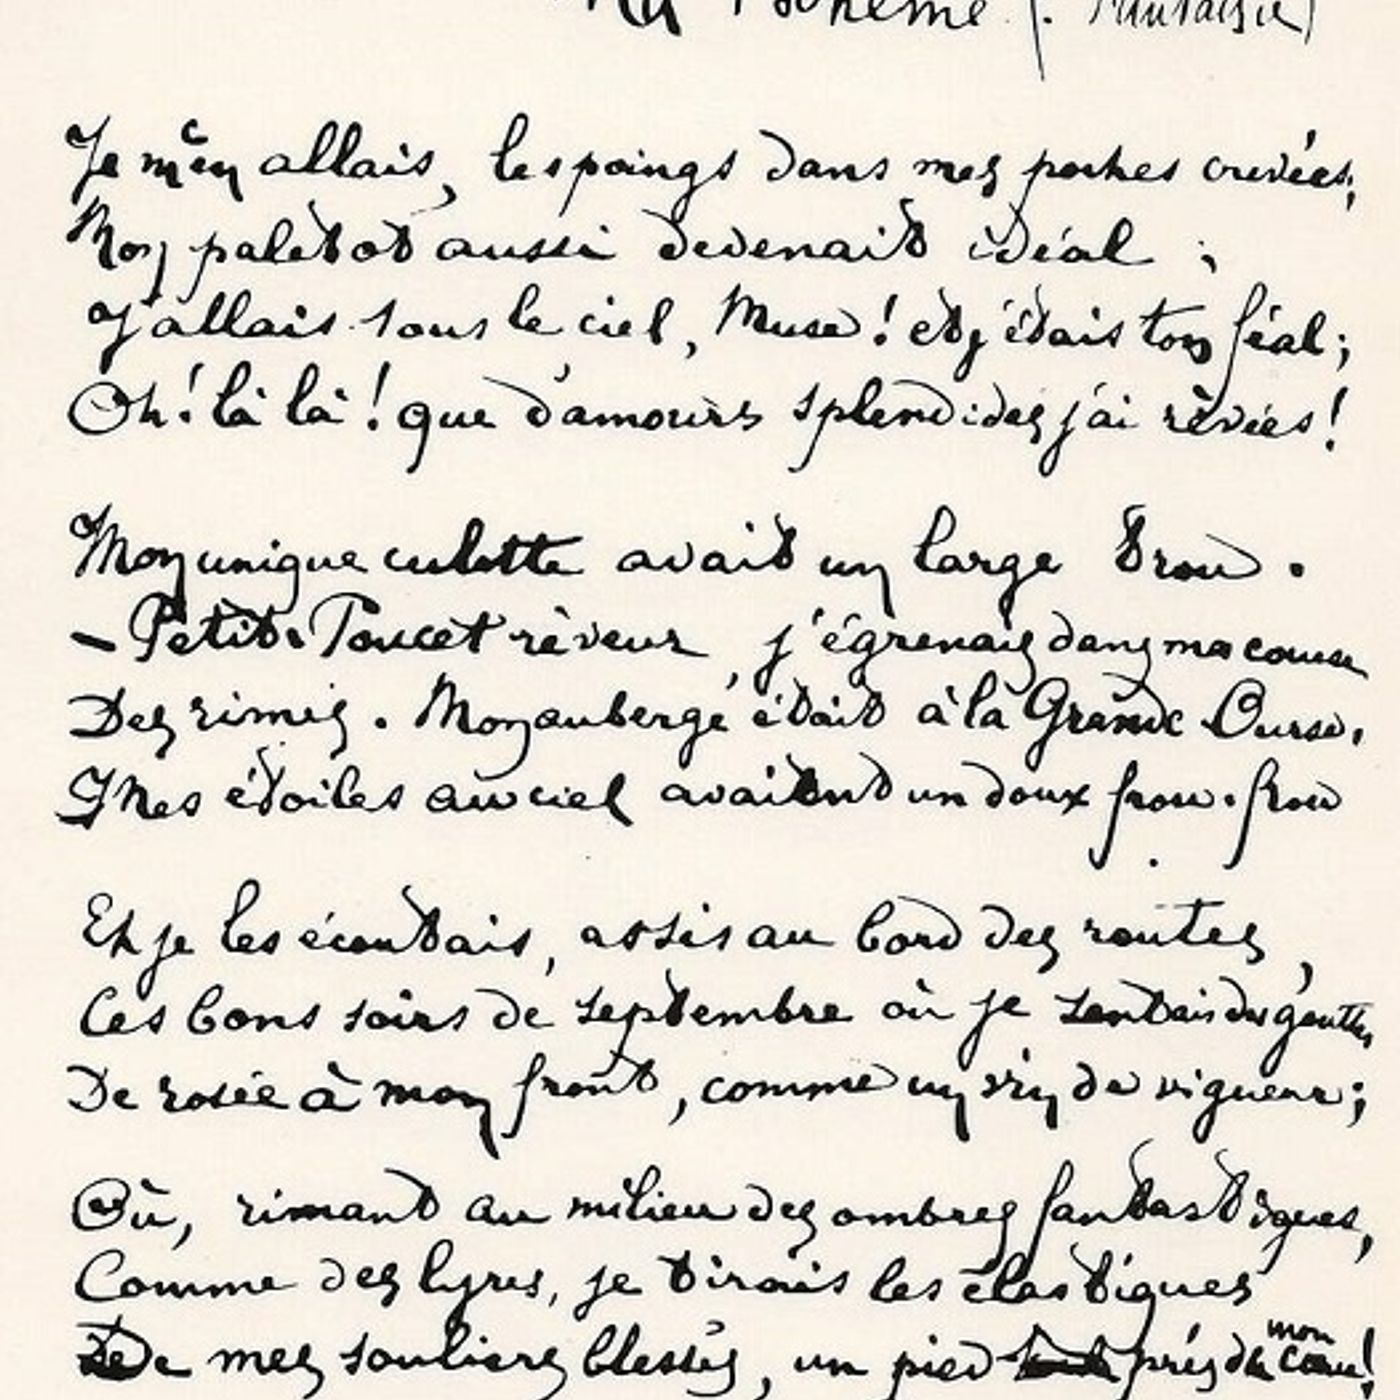 Ma Bohème (. Fantaisie)
Je m'en allais, les poings dans mes poches crevées;
Mon paletot aussi devenait idéal ;
J'allais sous le ciel, Muse ! et j'étais ton féal ;
Oh ! là là ! que d'amours splendides j'ai rêvées !
Mon unique culotte avait un large trou .
– Petit-Poucet rêveur, j'égrenais dans ma course
Des rimes . Mon auberge était à la Grande Ourse .
Mes étoiles au ciel avaient un doux frou-frou
Et je les écoutais, assis au bord des routes,
Ces bons soirs de septembre où je sentais des gouttes
De rosée à mon front, comme un vin de vigueur ;
Où, rimant au milieu des ombres fantastiques,
Comme des lyres, je tirais les élastiques
De mes souliers blessés, un pied près de mon cœur !